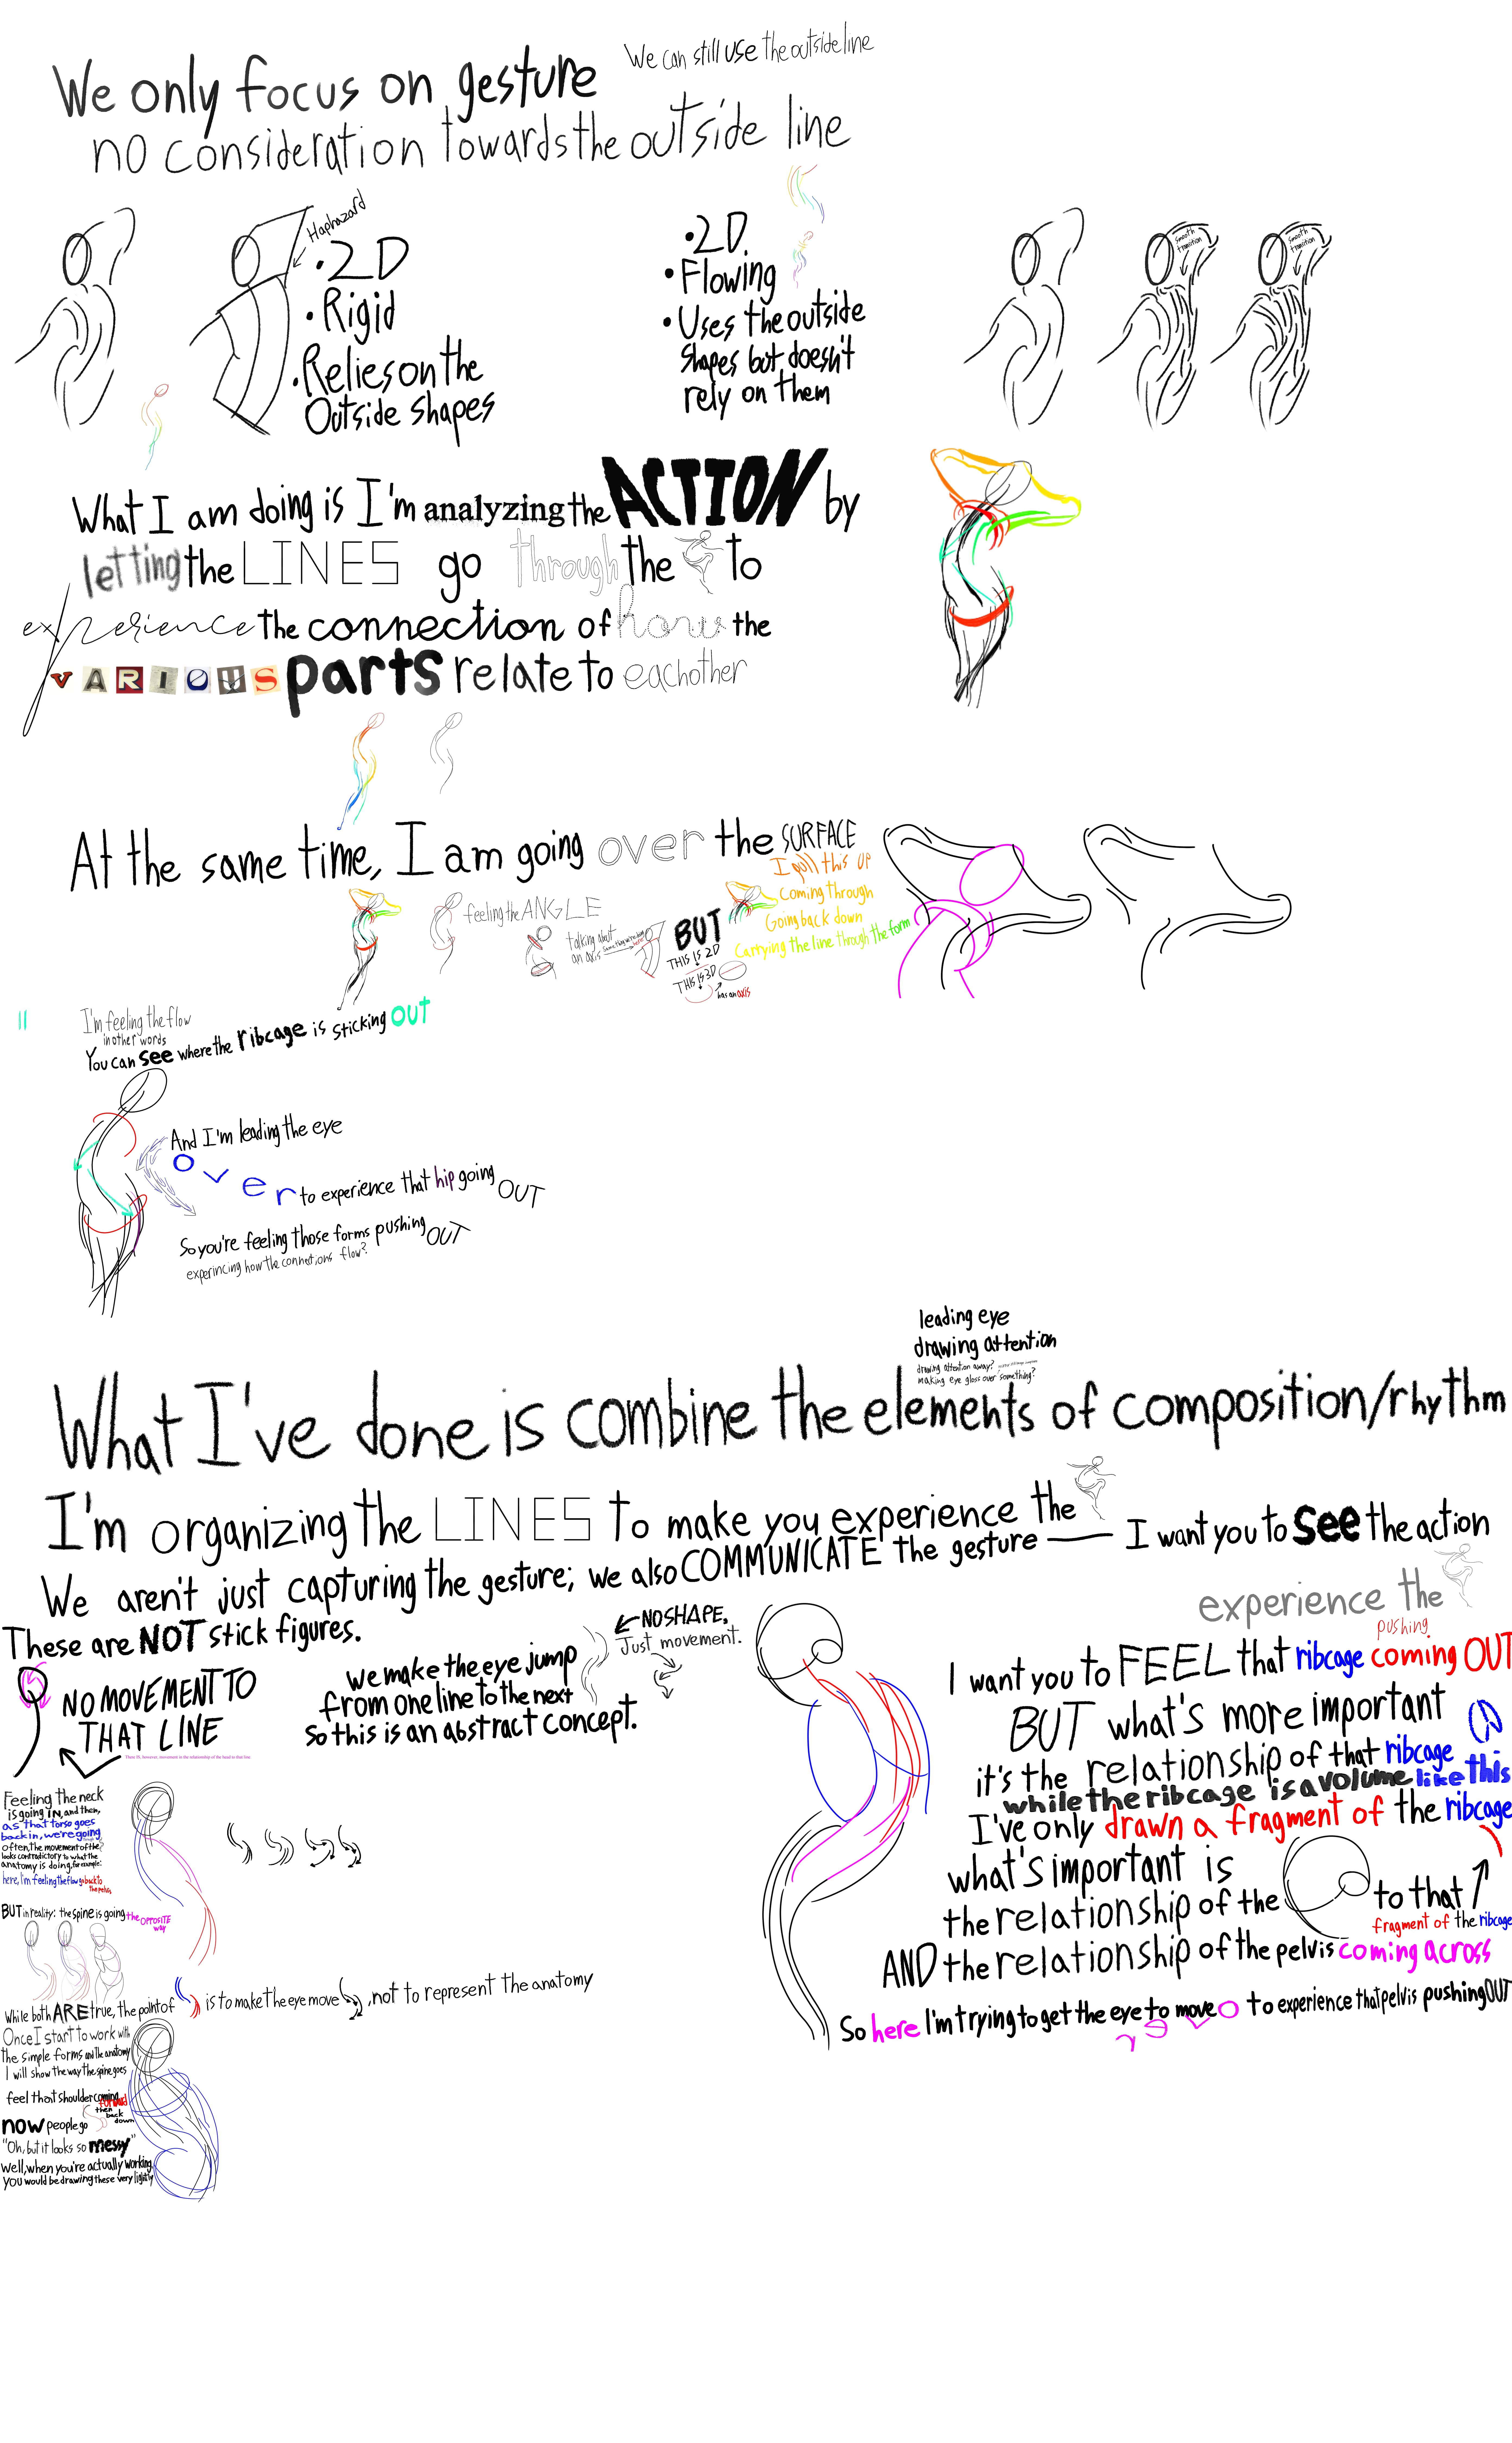 We can still use the outside line
We only focus on gesture
no consideration towards the outside line
Haphazard
•2D
•Rigid
•Relies on the
Outside shapes
•2D
•Flowing
•Uses the outside
shapes but doesn't
rely on them
smooth
transition
smooth
transition
What I am doing is I'm analyzing the ACTION by
letting the LINES go through the to
experience the connection of how the
VARIOUS parts relate to eachother
At the same time, I am going over the SURFACE
I pull this up
Coming through
Going back down
Carrying the line through the form
feeling the ANGLE
talking about
an axis
BUT
THIS IS 2D
THIS IS 3D
has an axis
I'm feeling the flow
in other words
You can see where the ribcage is sticking OUT
And I'm leading the eye
over to experience that hip going OUT
So you're feeling those forms pushing OUT
experincing how the connections flow?
leading eye
drawing attention
drawing attention away?
making eye gloss over something?
What I've done is combine the elements of composition/rhythm
I'm organizing the LINES to make you experience the
I want you to see the action
We aren't just capturing the gesture; we also COMMUNICATE the gesture
experience the
These are NOT stick figures.
NO MOVEMENT TO
THAT LINE
There IS, however, movement in the relationship of the head to that line.
we make the eye jump
from one line to the next
So this is an abstract concept.
NO SHAPE.
Just movement.
pushing
I want you to FEEL that ribcage coming OUT
BUT what's more important
it's the relationship of that ribcage
while the ribcage is a volume like this
I've only drawn a fragment of the ribcage
what's important is
the relationship of the to that
fragment of the ribcage
AND the relationship of the pelvis coming across
So here I'm trying to get the eye to move over to experience that pelvis pushing OUT
Feeling the neck
is going IN, and then,
as that torso goes
back in, we're going
often, the movement of the
looks contradictory to what the
anatomy is doing, for example:
here, I'm feeling the flow go back to
the pelvis
BUT in reality: the spine is going the OPPOSITE
way
While both ARE true, the point of is to make the eye move , not to represent the anatomy
Once I start to work with
the simple forms and the anatomy
I will show the way the spine goes
feel that shoulder coming
forward
then
back
down
now people go
"Oh, but it looks so messy"
Well, when you're actually working
you would be drawing these very lightly